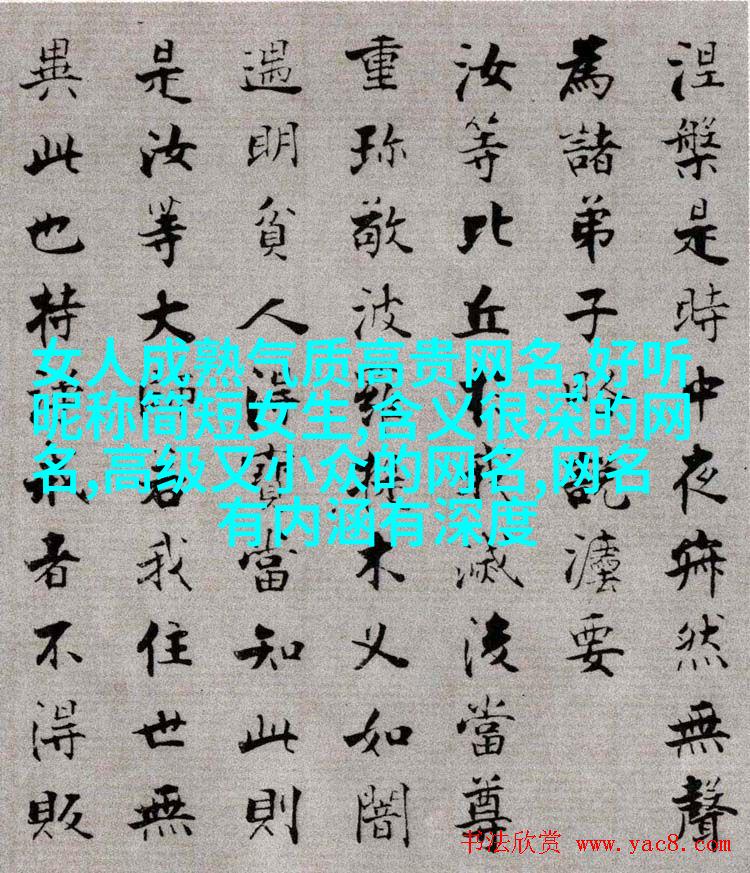 涅槃是時中夜寂然無聲
為諸弟子略說灋要
汝等比丘於我滅後當尊
重珍敬波提木叉如闇
遇明貧人得寶當知此則
是汝等大師若我住世無
異此也持戒者不得販
女人成熟气质高贵网名,好听
昵称简短女生,含义很深的网
名,高级又小众的网名,网名
有内涵有深度
书法欣赏 www.yac8.com